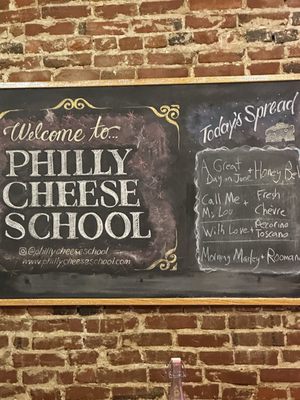 Welcome to...
PHILLY
CHEESE
SCHOOL
@phillycheeseschool
www.phillycheeseschool.com
Today's Spread
A Great
Day in June + Honey Be
Call Me + Fresh
M. Lou Chèvre
With Love + Pecorino
Toscano
Morning Manley + Rooman